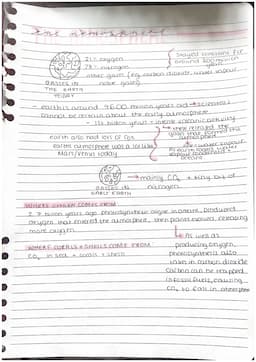 THE ATMOSPHERE
21% oxygen
78% nitrogen
other gases (eg. carbon dioxide, water vapour,
noble gases)
Stayed constant for
around 200 million
years
GASES IN
THE EARTH
TODAY
- earth is around 4600 million years old → scientists
cannot be certain about the early atmosphere
- 1st billion years = intense volcanic activity
→ they released the
gases that formed the
atmosphere
earth also had lots of CO₂
earth's atmosphere was a lot like
Mars/Venus today
water vapour
As earth cooled, water
vapour condensed =
oceans
mainly CO₂ + tiny bit of
nitrogen
GASES IN
EARLY EARTH
WHERE OXYGEN COMES FROM
2.7 billion years ago photosynthetic algae produced
oxygen that entered the atmosphere, then plants evolved, releasing
more oxygen
↳ As well as
producing oxygen,
photosynthesis also
takes in carbon dioxide
Carbon can be trapped
in fossil fuels, causing
CO₂ to fall in atmosphere
WHERE CORALS + SHELLS COME FROM
CO₂ in sea → corals + shells